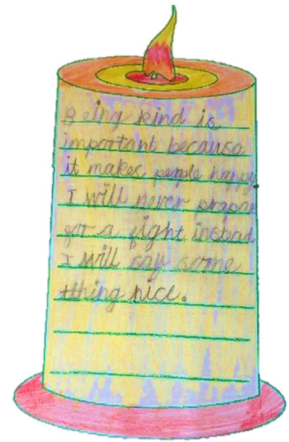 Being kind is
important because
it makes people happy
I will never prepar
for a fight instead
I will say some
thing nice.